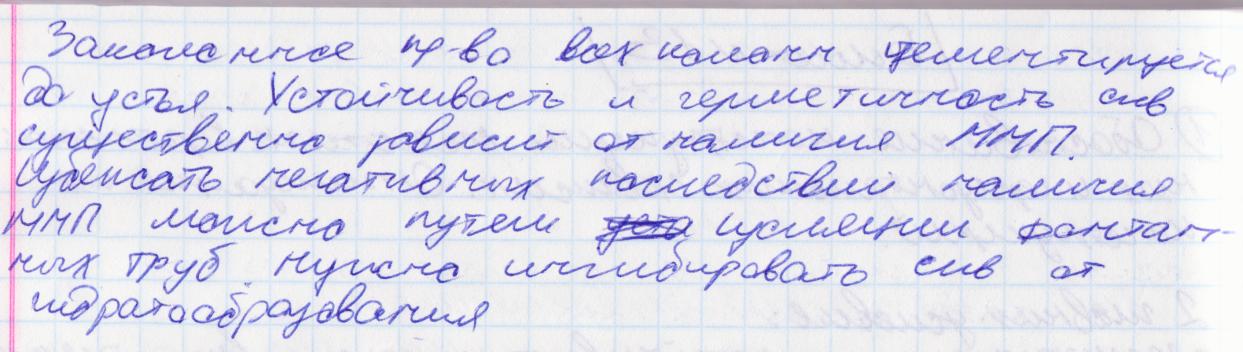 Заколонное пр-во всех колонн цементируется
до устья. Устойчивость и герметичность скв
существенно зависит от наличия ММП.
Избежать негативных последствий наличия
ММП можно путем изоляции фонтан-
ных труб. нужно ингибировать скв от
гидратообразования